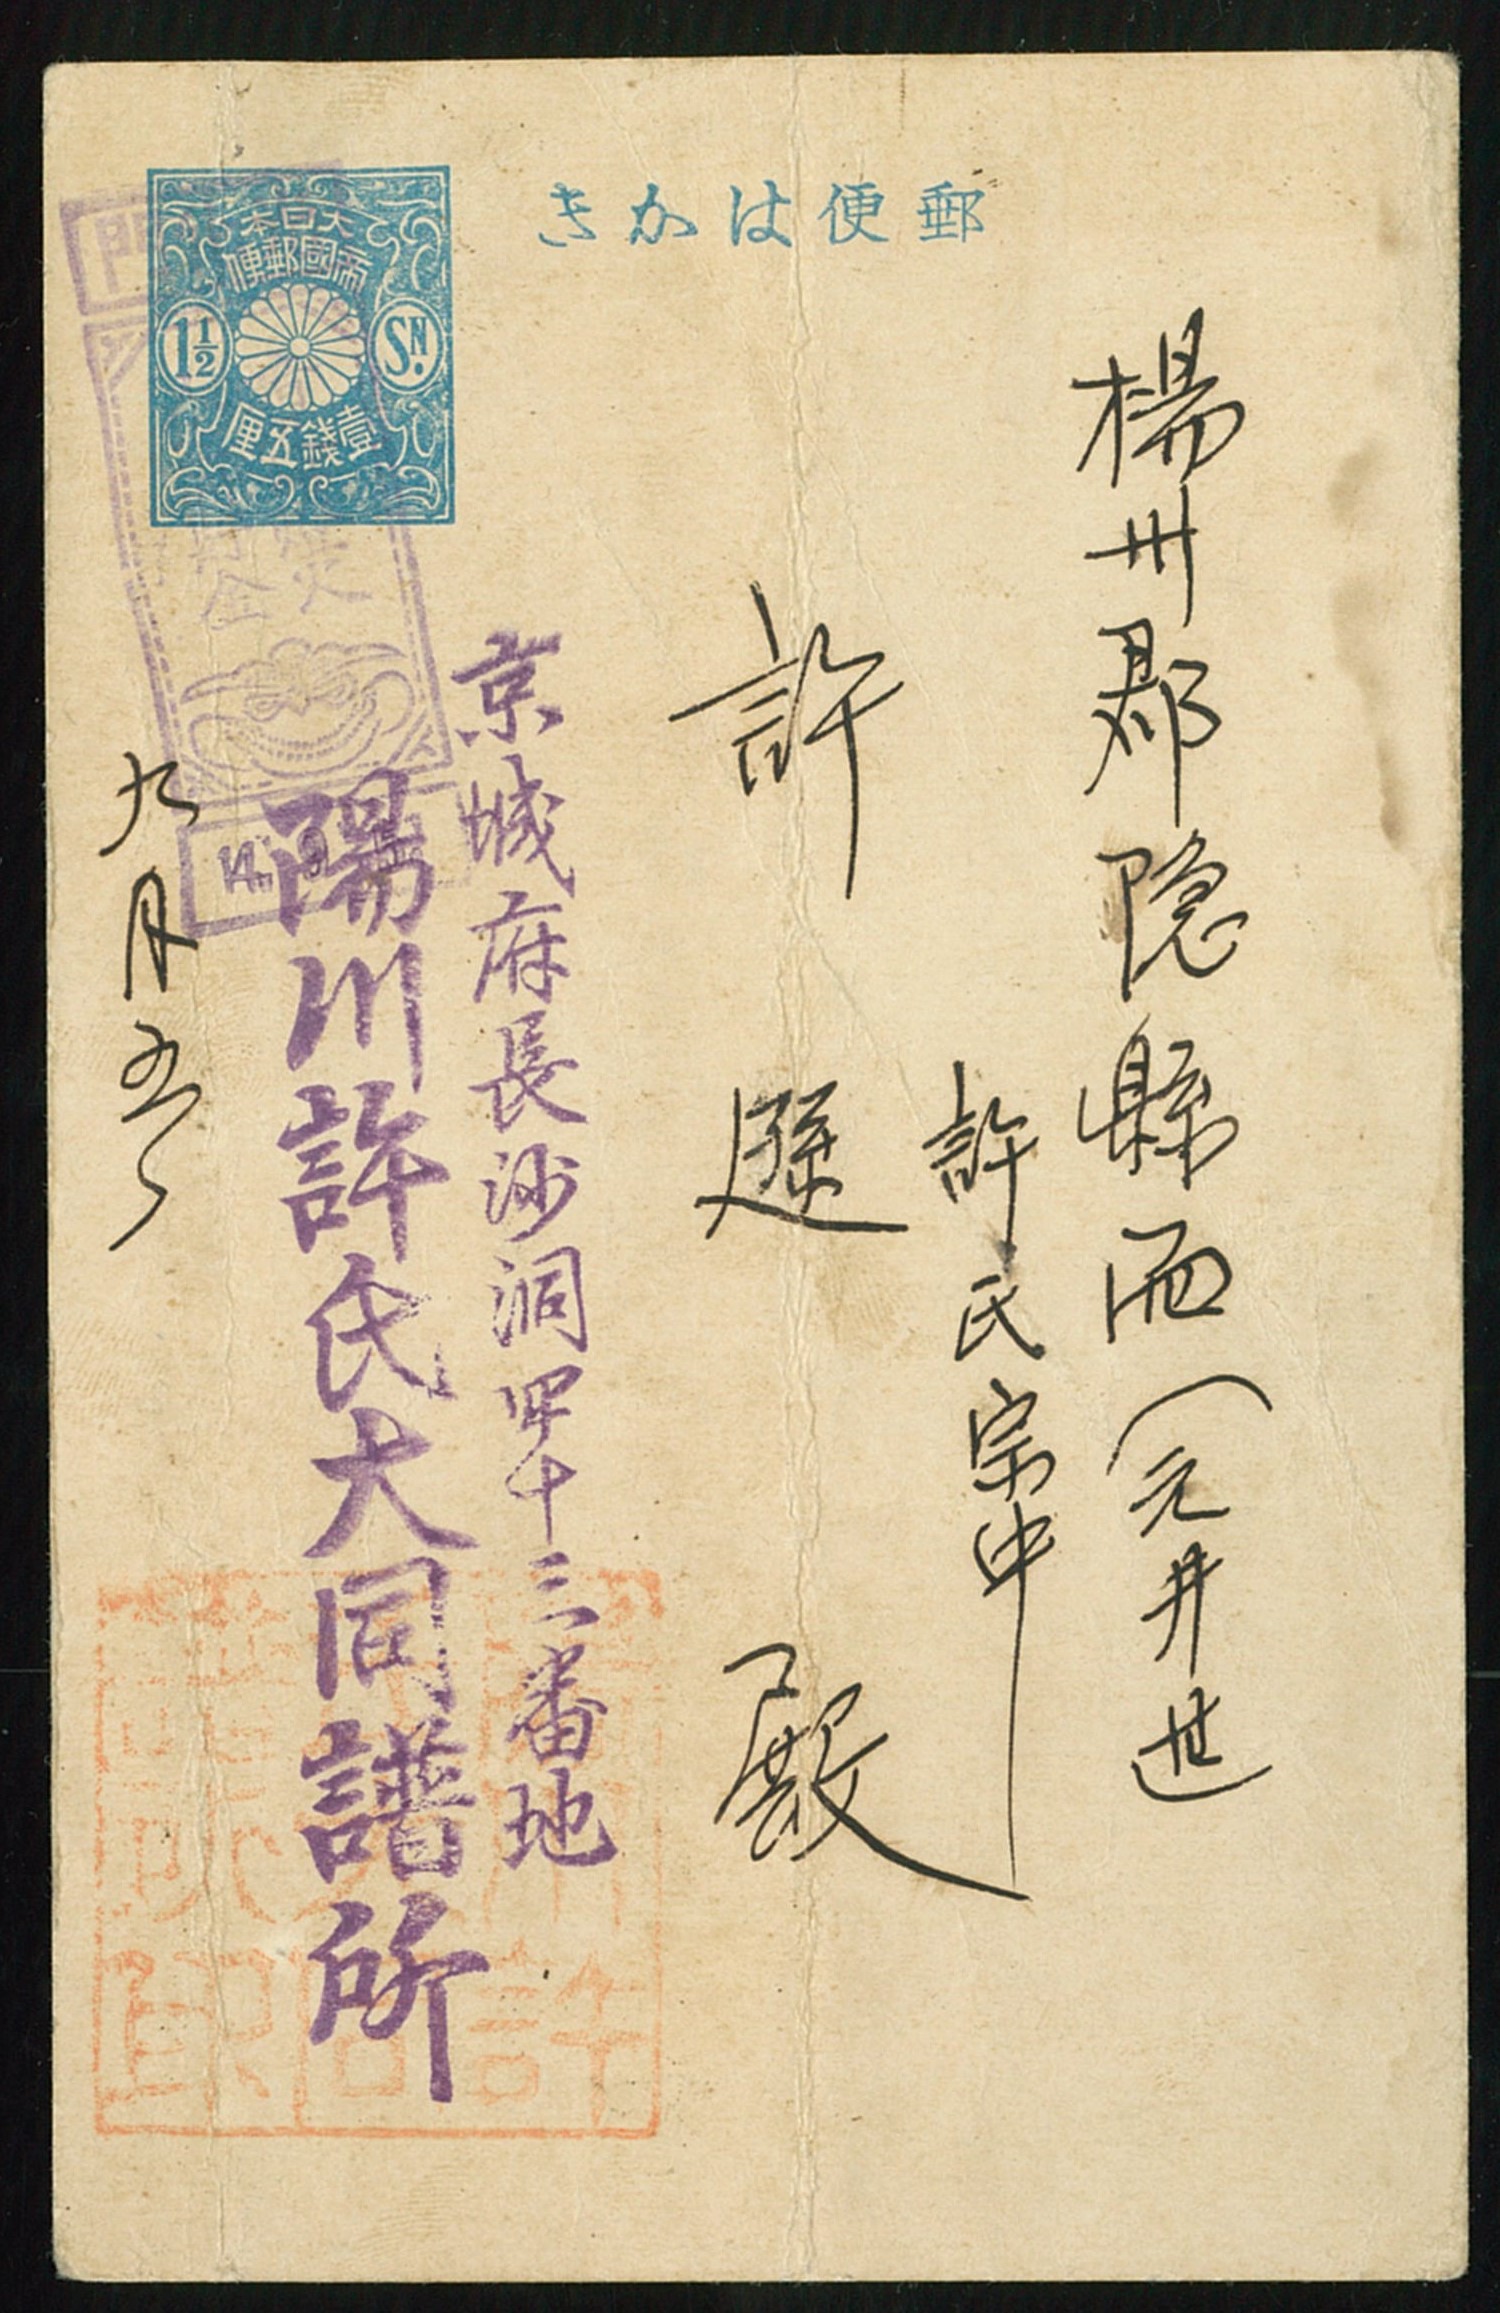 郵便はかき
大日本
帝國郵便
1½ SN.
壹錢五厘
楊州郡隠縣面（元井世
許氏宗中
許遜殿
京城府長沙洞四十三番地
陽川許氏大同譜所
九月五